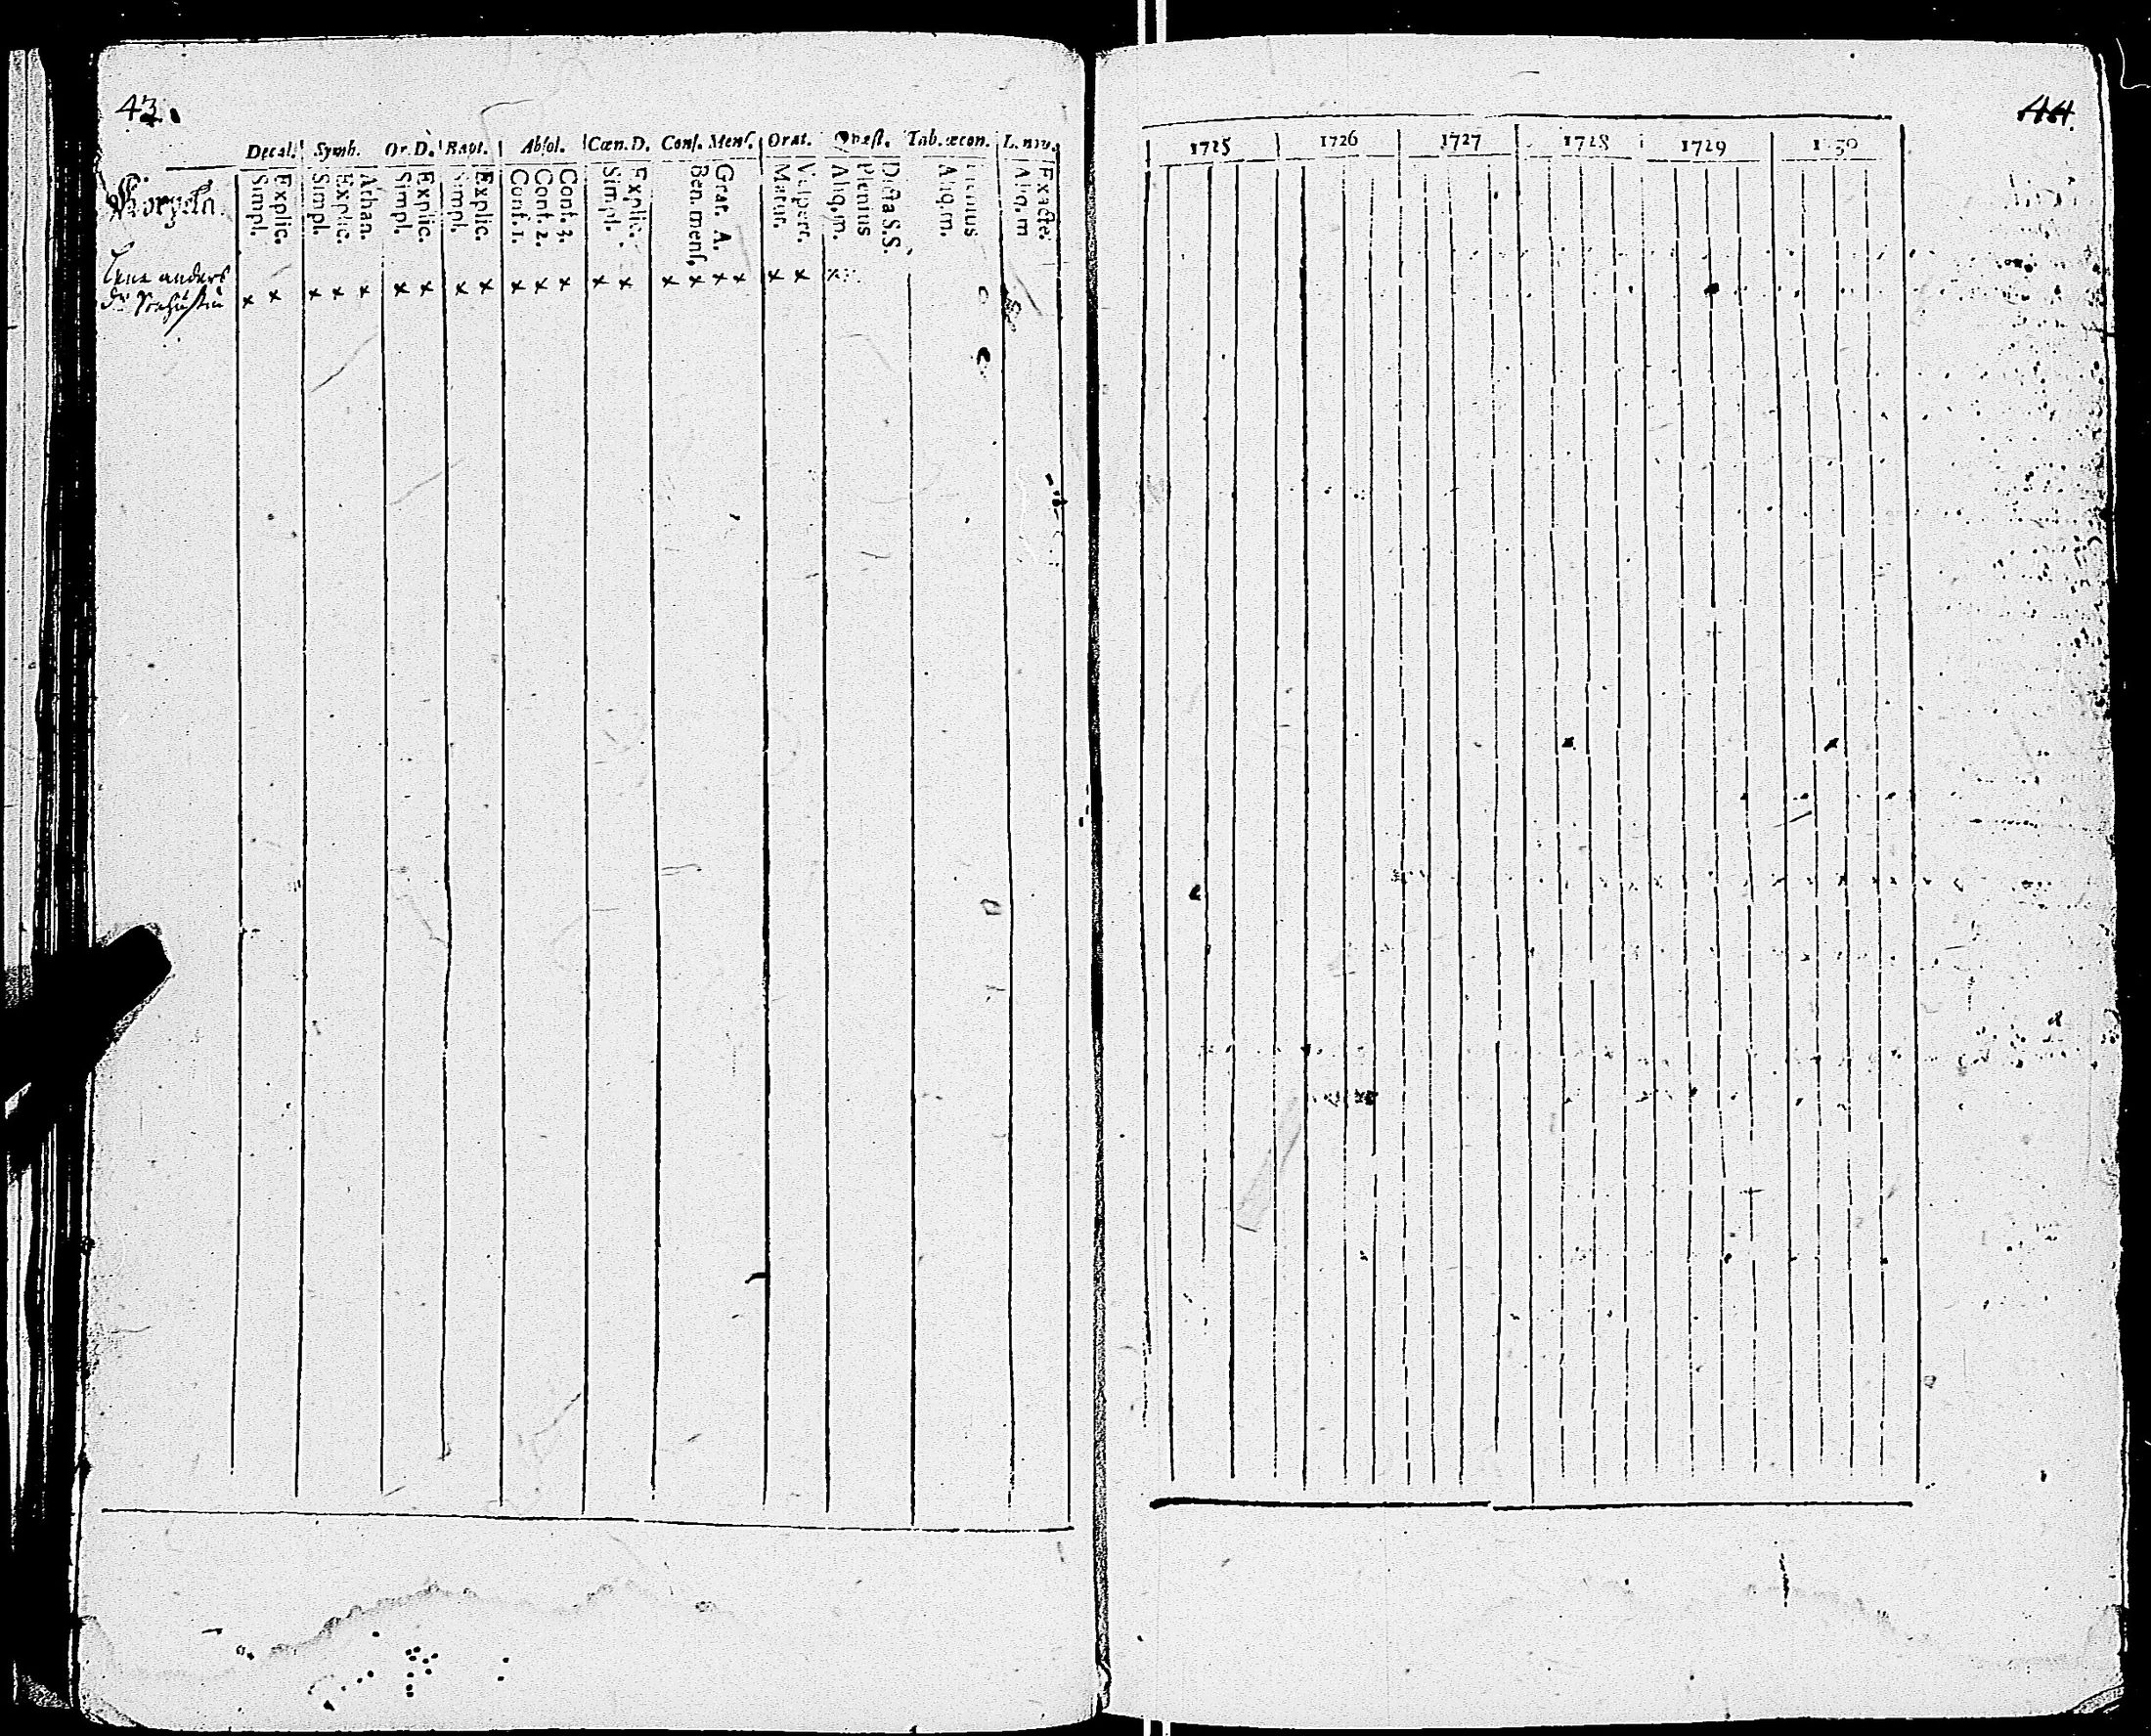 43.
Decal. Symb. Or. D. Bapt. Absol. Cœn. D. Conf. Menſ. Orat. Quæſt. Tab. œcon. L. nov.
Simpl. Explic. Simpl. Explic. Athan. Simpl. Explic. Simpl. Explic. Conf. 1. Conf. 2. Conf. 3. Simpl. Explic. Ben. menſ. Grat. A. Matut. Veſpert. Aliq. m. Plenius Dicta S.S. Aliq. m. Plenius Aliq. m Exacte.
anders
x x x x x x x x x x x x x x x x x x x x x
44.
1725 1726 1727 1728 1729